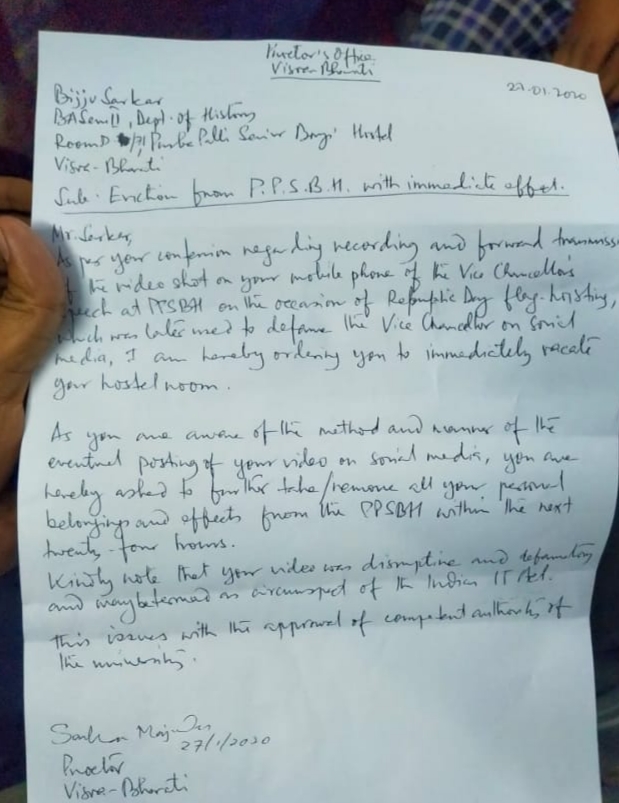 Proctor's Office
Visva-Bharati
27.01.2020
Bijju Sarkar
BA Sem II, Dept. of History
Room D /71, Purba Palli Senior Boys' Hostel
Visva-Bharati
Sub: Eviction from P.P.S.B.H. with immediate effect.
Mr. Sarkar,
As per your confession regarding recording and forward transmiss
of the video shot on your mobile phone of the Vice Chancellor's
speech at PPSBH on the occasion of Republic Day flag-hoisting,
which was later used to defame the Vice Chancellor on social
media, I am hereby ordering you to immediately vacate
your hostel room.
As you are aware of the method and manner of the
eventual posting of your video on social media, you are
hereby asked to further take/remove all your personal
belongings and effects from the PPSBH within the next
twenty-four hours.
Kindly note that your video was disruptive and defamatory
and may be termed as circumspect of the Indian IT Act.
This issues with the approval of competent authority of
the university.
27/1/2020
Proctor
Visva-Bharati